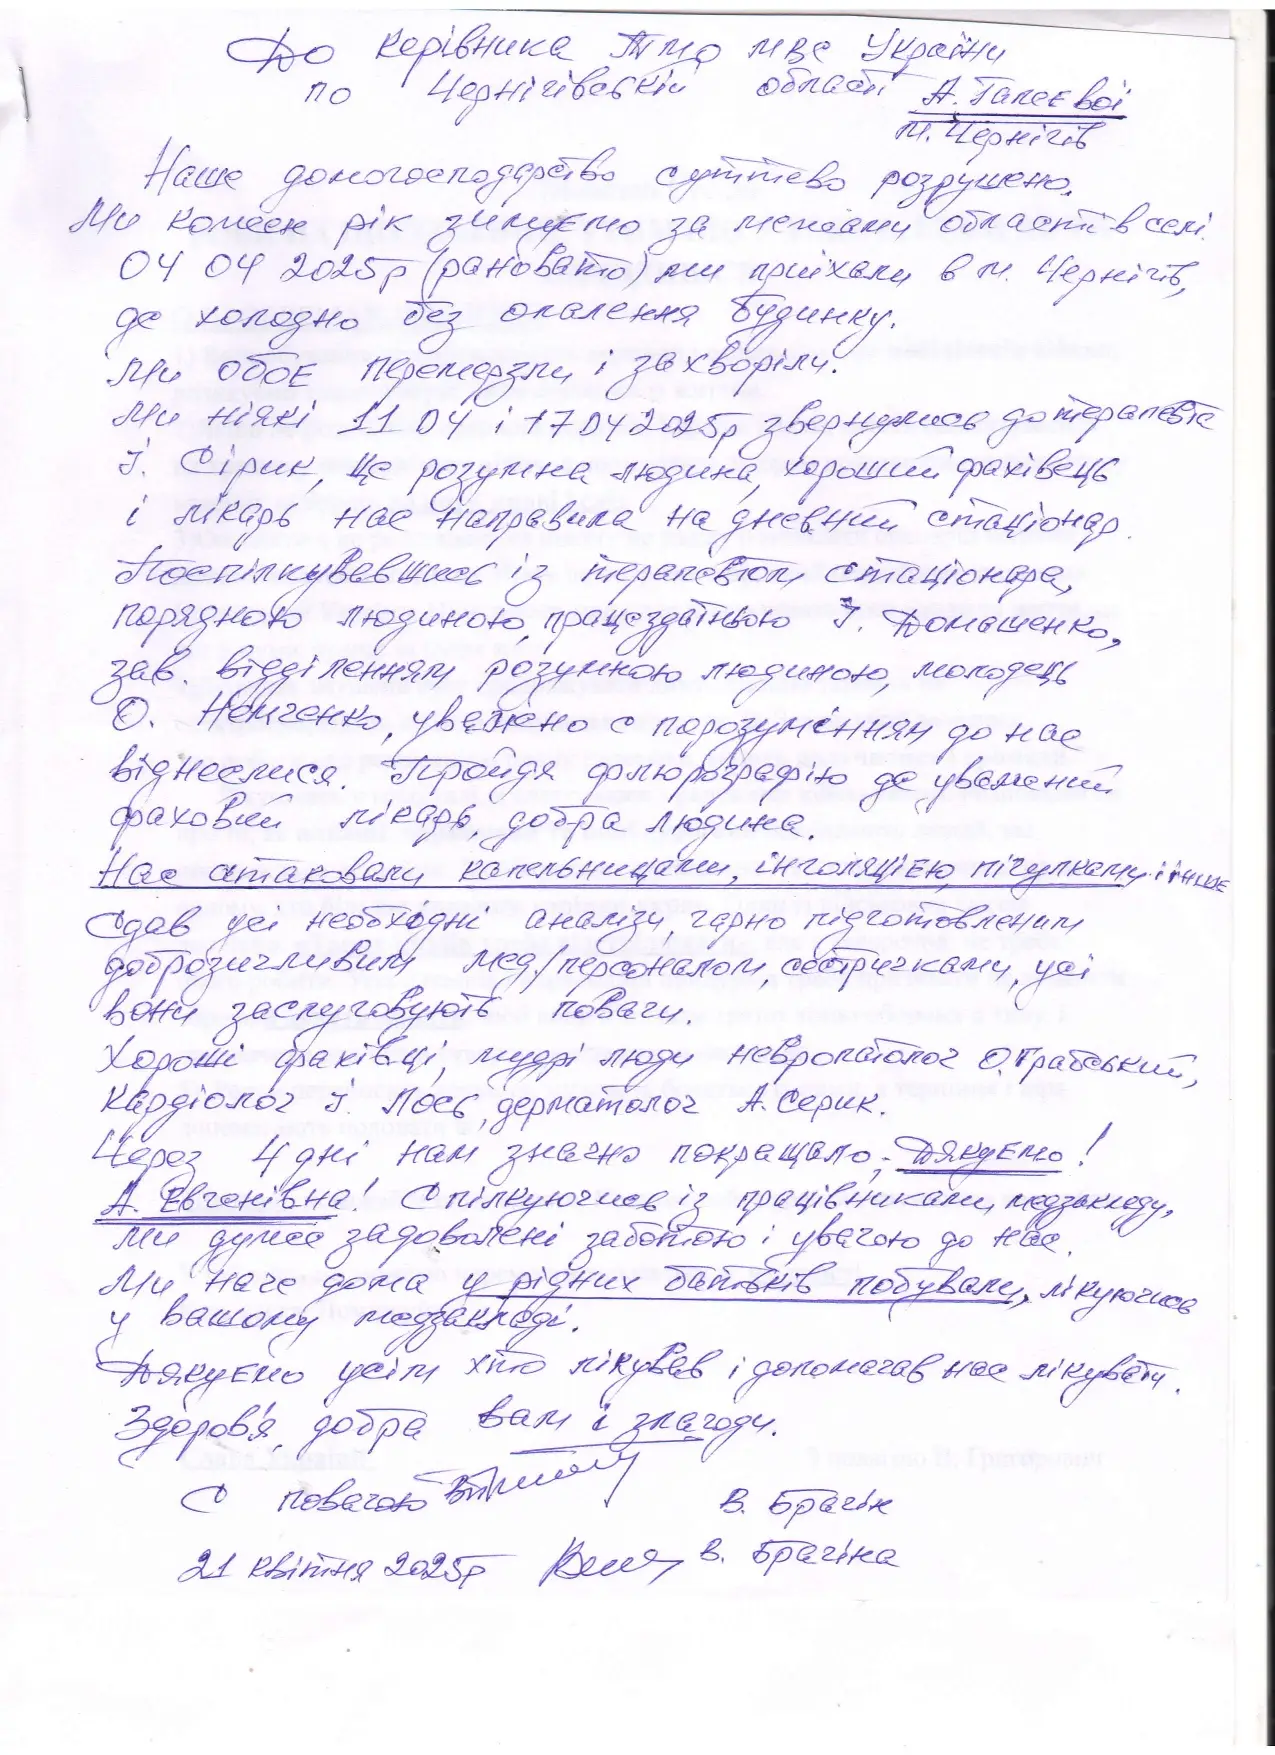 До керівника ТМО МВС України
по Чернігівській області А. Галеєвої
м. Чернігів
Наше домогосподарство суттєво розрушено.
Ми кожен рік зимуємо за межами області в селі.
04 04 2025р (рановато) ми приїхали в м. Чернігів,
де холодно без опалення будинку.
Ми обоє перемерзли і захворіли.
Ми ніякі 11 04 і 17 04 2025р звернулись до терапевта
І. Сірик, це розумна людина, хороший фахівець
і лікарь нас направила на дневний стаціонар.
Поспілкувавшись із терапевтом стаціонара,
порядною людиною, працездатньою І. Домашенко,
зав. відділенням розумною людиною, молодець
О. Немченко, уважно с порозумінням до нас
віднеслися. Пройдя флюрографію де уважений
фаховий лікарь, добра людина.
Нас атаковали капельницами, інголяцією, пігулками і інше
Сдав усі необходні аналізи, гарно підготовленим
доброзичливим мед/персоналом, сестричками, усі
вони заслуговують поваги.
Хороші фахівці, мудрі люди невропатолог О. Грабський,
кардіолог І. Лось, дерматолог А. Серик.
Через 4 дні нам значно покращало, - Дякуємо!
А. Евгенівна! Спілкуючись із працівниками медзакладу,
ми дуже задоволені заботою і увагою до нас.
Ми наче дома у рідних батьків побували, лікуючись
у вашому медзакладі.
Дякуємо усім хто лікував і допомагав нас лікувати.
Здоров'я, добра вам і злагоди.
С повагою В. Брагін
21 квітня 2025р В. Брагіна